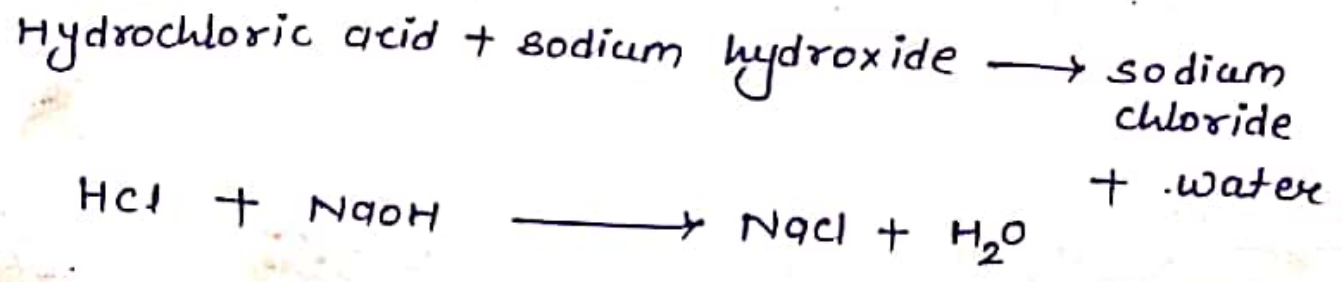 Hydrochloric acid + sodium hydroxide ⟶ sodium
chloride
+ water
HCl + NaOH ⟶ NaCl + H₂O